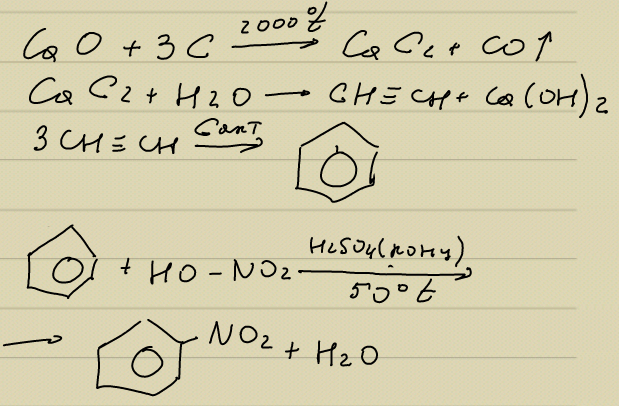 CaO + 3C 2000°t → CaC2 + CO↑
CaC2 + H2O → CH≡CH + Ca(OH)2
3CH≡CH Сакт →
+ HO-NO2 H2SO4(конц) 50°t →
→ NO2 + H2O